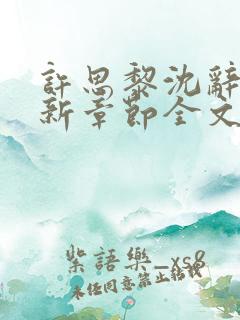 許思黎沈辭
新章節全文
紫語樂_xs8
未經同意禁止轉載